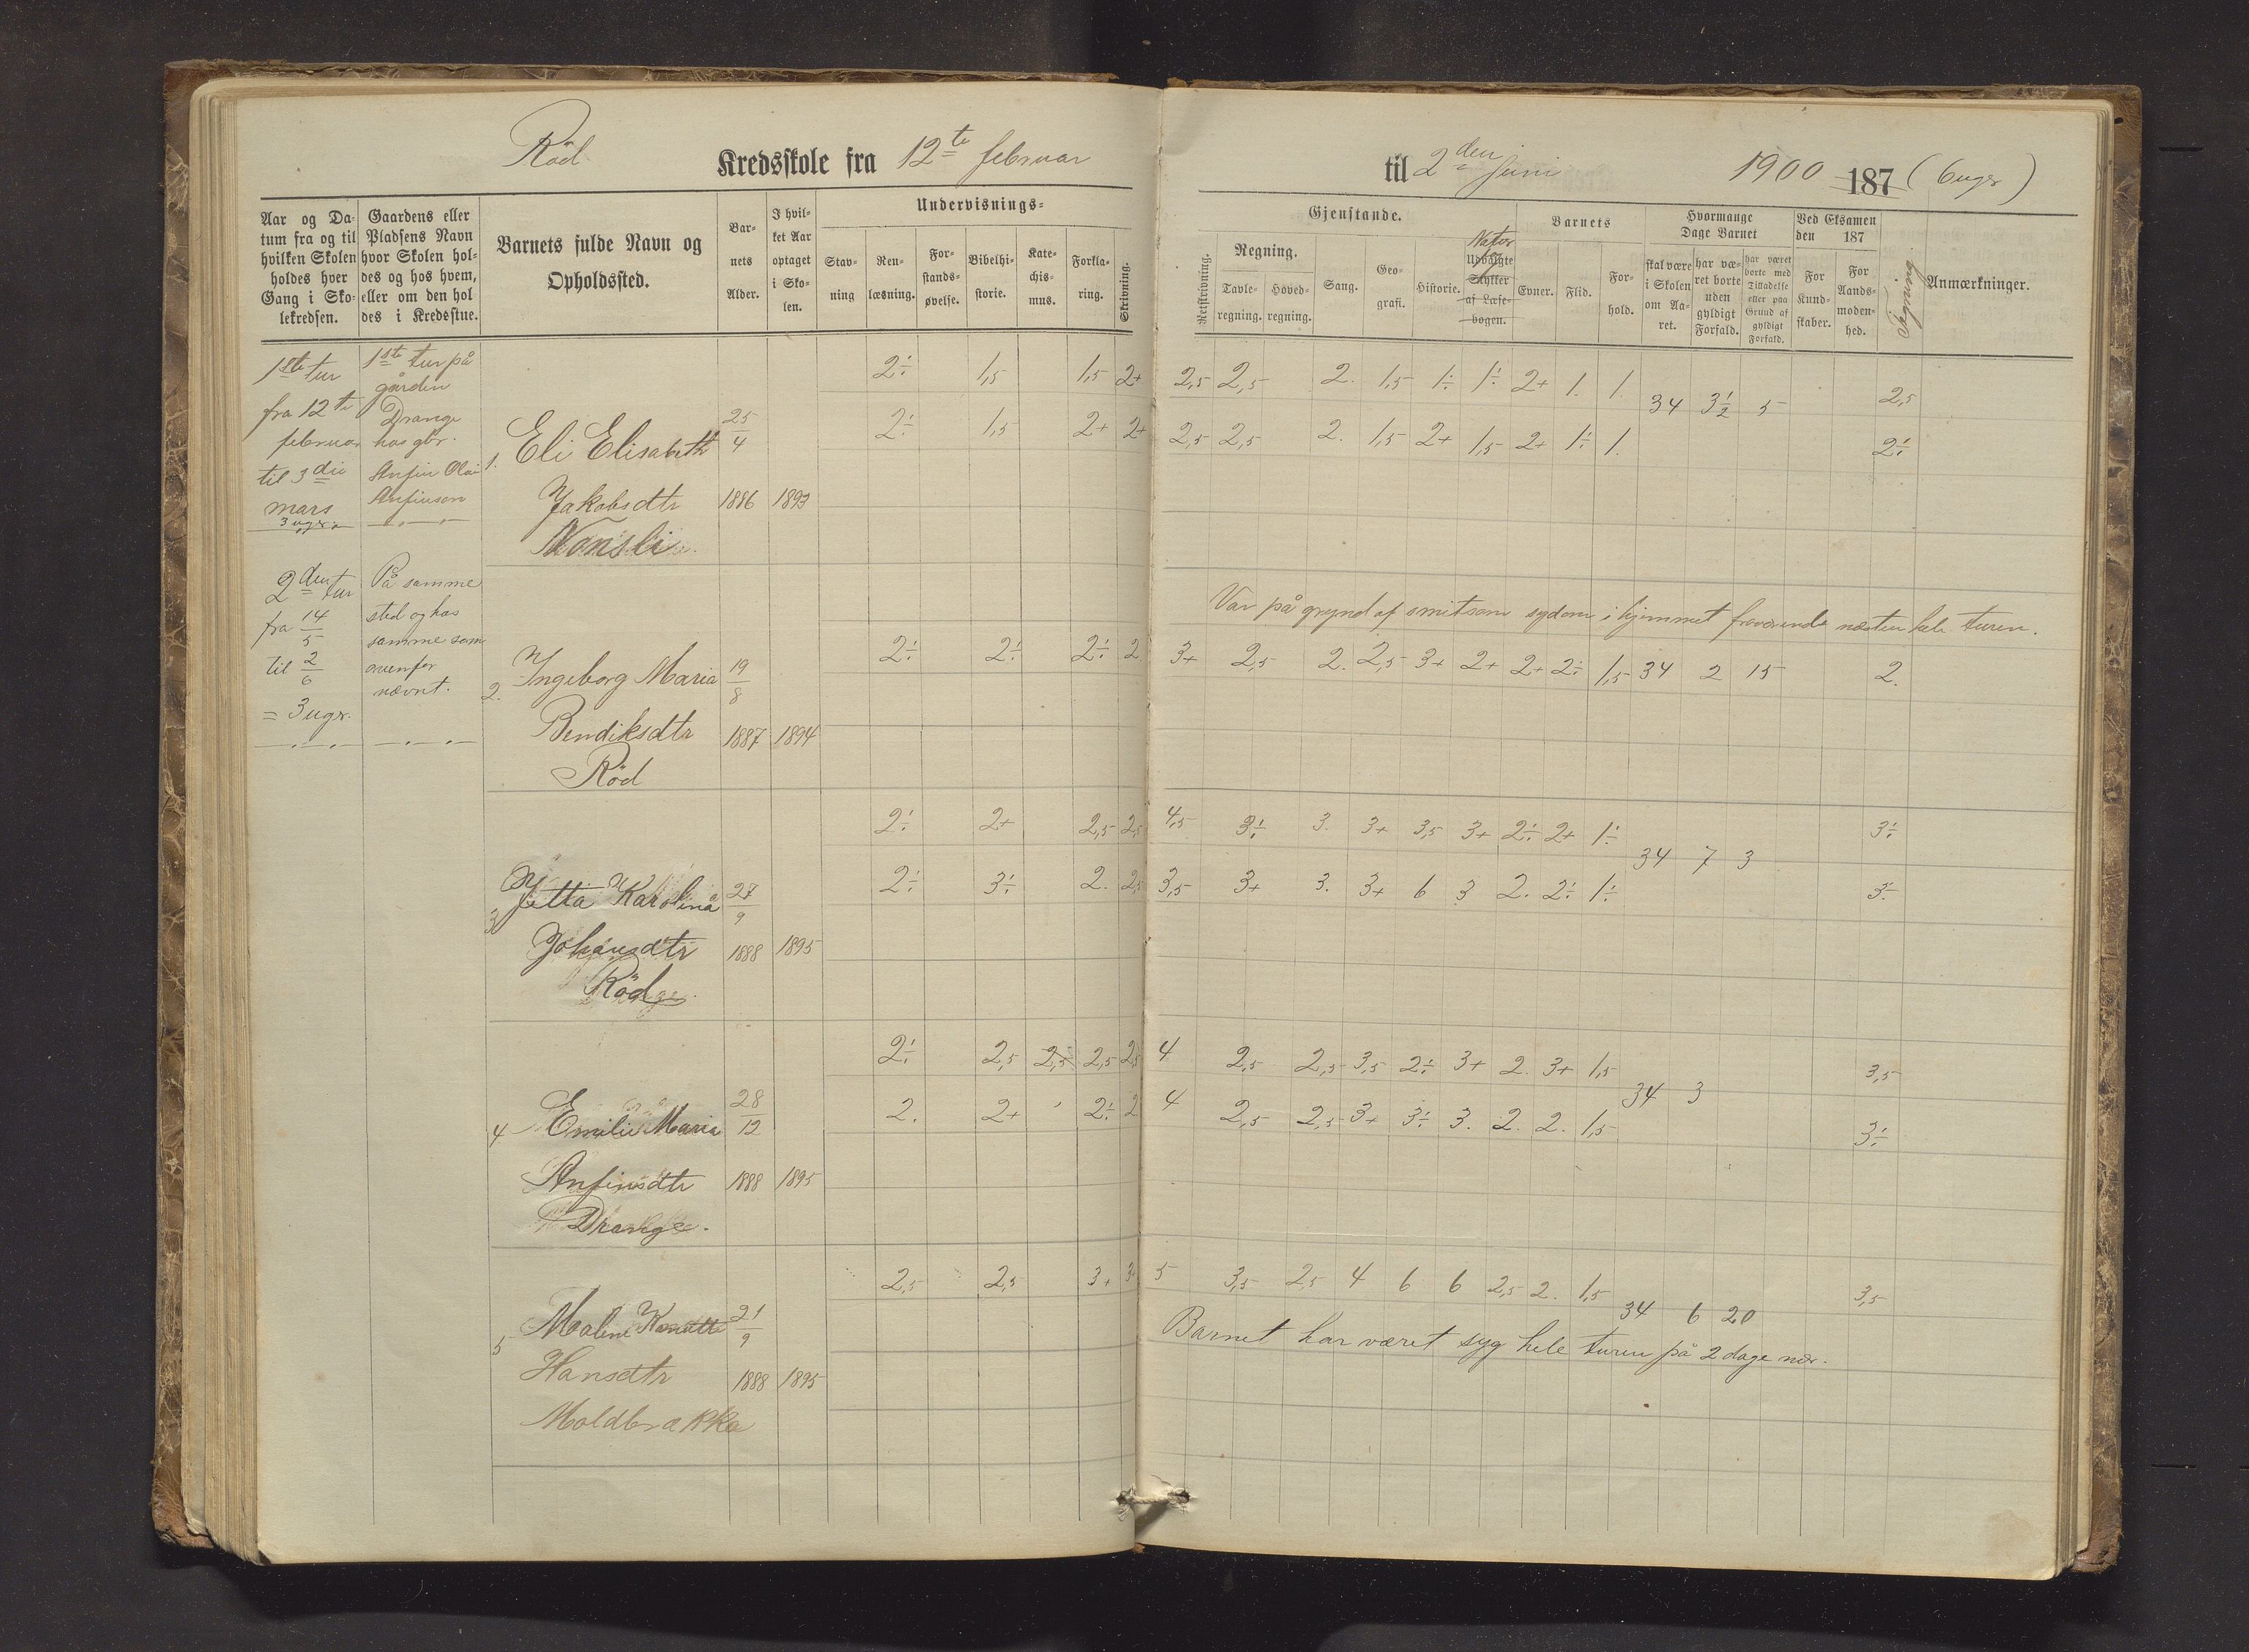 Röd Kredsskole fra 12te februar
til 2den Juni 1900 187 (6 uger)
Aar og Da-
tum fra og til
hvilken Skolen
holdes hver
Gang i Sko-
lekredsen.
Gaardens eller
Pladsens Navn
hvor Skolen hol-
des og hos hvem,
eller om den hol
des i Kredsstue.
Barnets fulde Navn og
Opholdssted.
Bar-
nets
Alder.
I hvil-
ket Aar
optaget
i Sko-
len.
Undervisnings-
Stav-
ning
Ren-
læsning.
For-
stands-
øvelse.
Bibelhi-
storie.
Kate-
chis-
mus.
Forkla-
ring.
Skrivning.
Gjenstande.
Retskrivning.
Regning.
Tavle-
regning.
Hoved-
regning.
Sang.
Geo-
grafi.
Historie.
Udvalgte
Stykker
af Læse-
bogen.
Barnets
Evner.
Flid.
For-
hold.
Hvormange
Dage Barnet
skal være
i Skolen
om Aa-
ret.
har væ-
ret borte
uden
gyldigt
Forfald.
har været
borte med
Tilladelse
eller paa
Grund af
gyldigt
Forfald.
Ved Eksamen
den 187
For
Kund-
skaber.
For
Aands-
moden-
hed.
Tegning
Anmærkninger.
1ste tur
fra 12te
februar
til 3die
mars
3 uger
1ste tur på
gården
Drange
hos gbr.
Anfin Olai
Anfinson
2den tur
fra 14/5
til 2/6
= 3 uger.
På samme
sted og hos
samme som
ovenfor
nævnt.
2÷ 1,5 1,5 2+ 2,5 2,5 2. 1,5 1÷ 1÷ 2+ 1. 1. 34 3 1/2 5 2,5
1. Eli Elisabeth 25/4 2÷ 1,5 2+ 2+ 2,5 2,5 2. 1,5 2+ 1,5 2+ 1÷ 1. 2÷
Jakobsdtr 1886 1893
Nonsli
Var på grund af smitsom sygdom i hjemmet fraværende næsten hele turen.
2. Ingeborg Maria 19/8 2÷ 2÷ 2÷ 2. 3+ 2,5 2. 2,5 3+ 2+ 2+ 2÷ 1,5 34 2 15 2.
Bendiksdtr 1887 1894
Röd
2÷ 2+ 2,5 2,5 4,5 3÷ 3. 3+ 3,5 3+ 2÷ 2+ 1÷ 34 7 3 3÷
3 Jetta Karolina 27/9 2÷ 3÷ 2. 2,5 3,5 3+ 3. 3+ 6 3 2. 2÷ 1÷ 3÷
Johansdtr 1888 1895
Röd
2÷ 2,5 2,5 2,5 2,5 4 2,5 2,5 3,5 2÷ 3+ 2. 3+ 1,5 34 3 3,5
4 Emilie Maria 28/12 2. 2+ 2÷ 2 4 2,5 2,5 3+ 3÷ 3. 2. 2. 1,5 3÷
Anfinsdtr 1888 1895
Drange.
2,5 2,5 3+ 3+ 5 3,5 2,5 4 6 6 2,5 2. 1,5 34 6 20 3,5
5 Malene 21/9
Barnet har været syg hele turen på 2 dage nær.
Hansdtr 1888 1895
Moldbrække